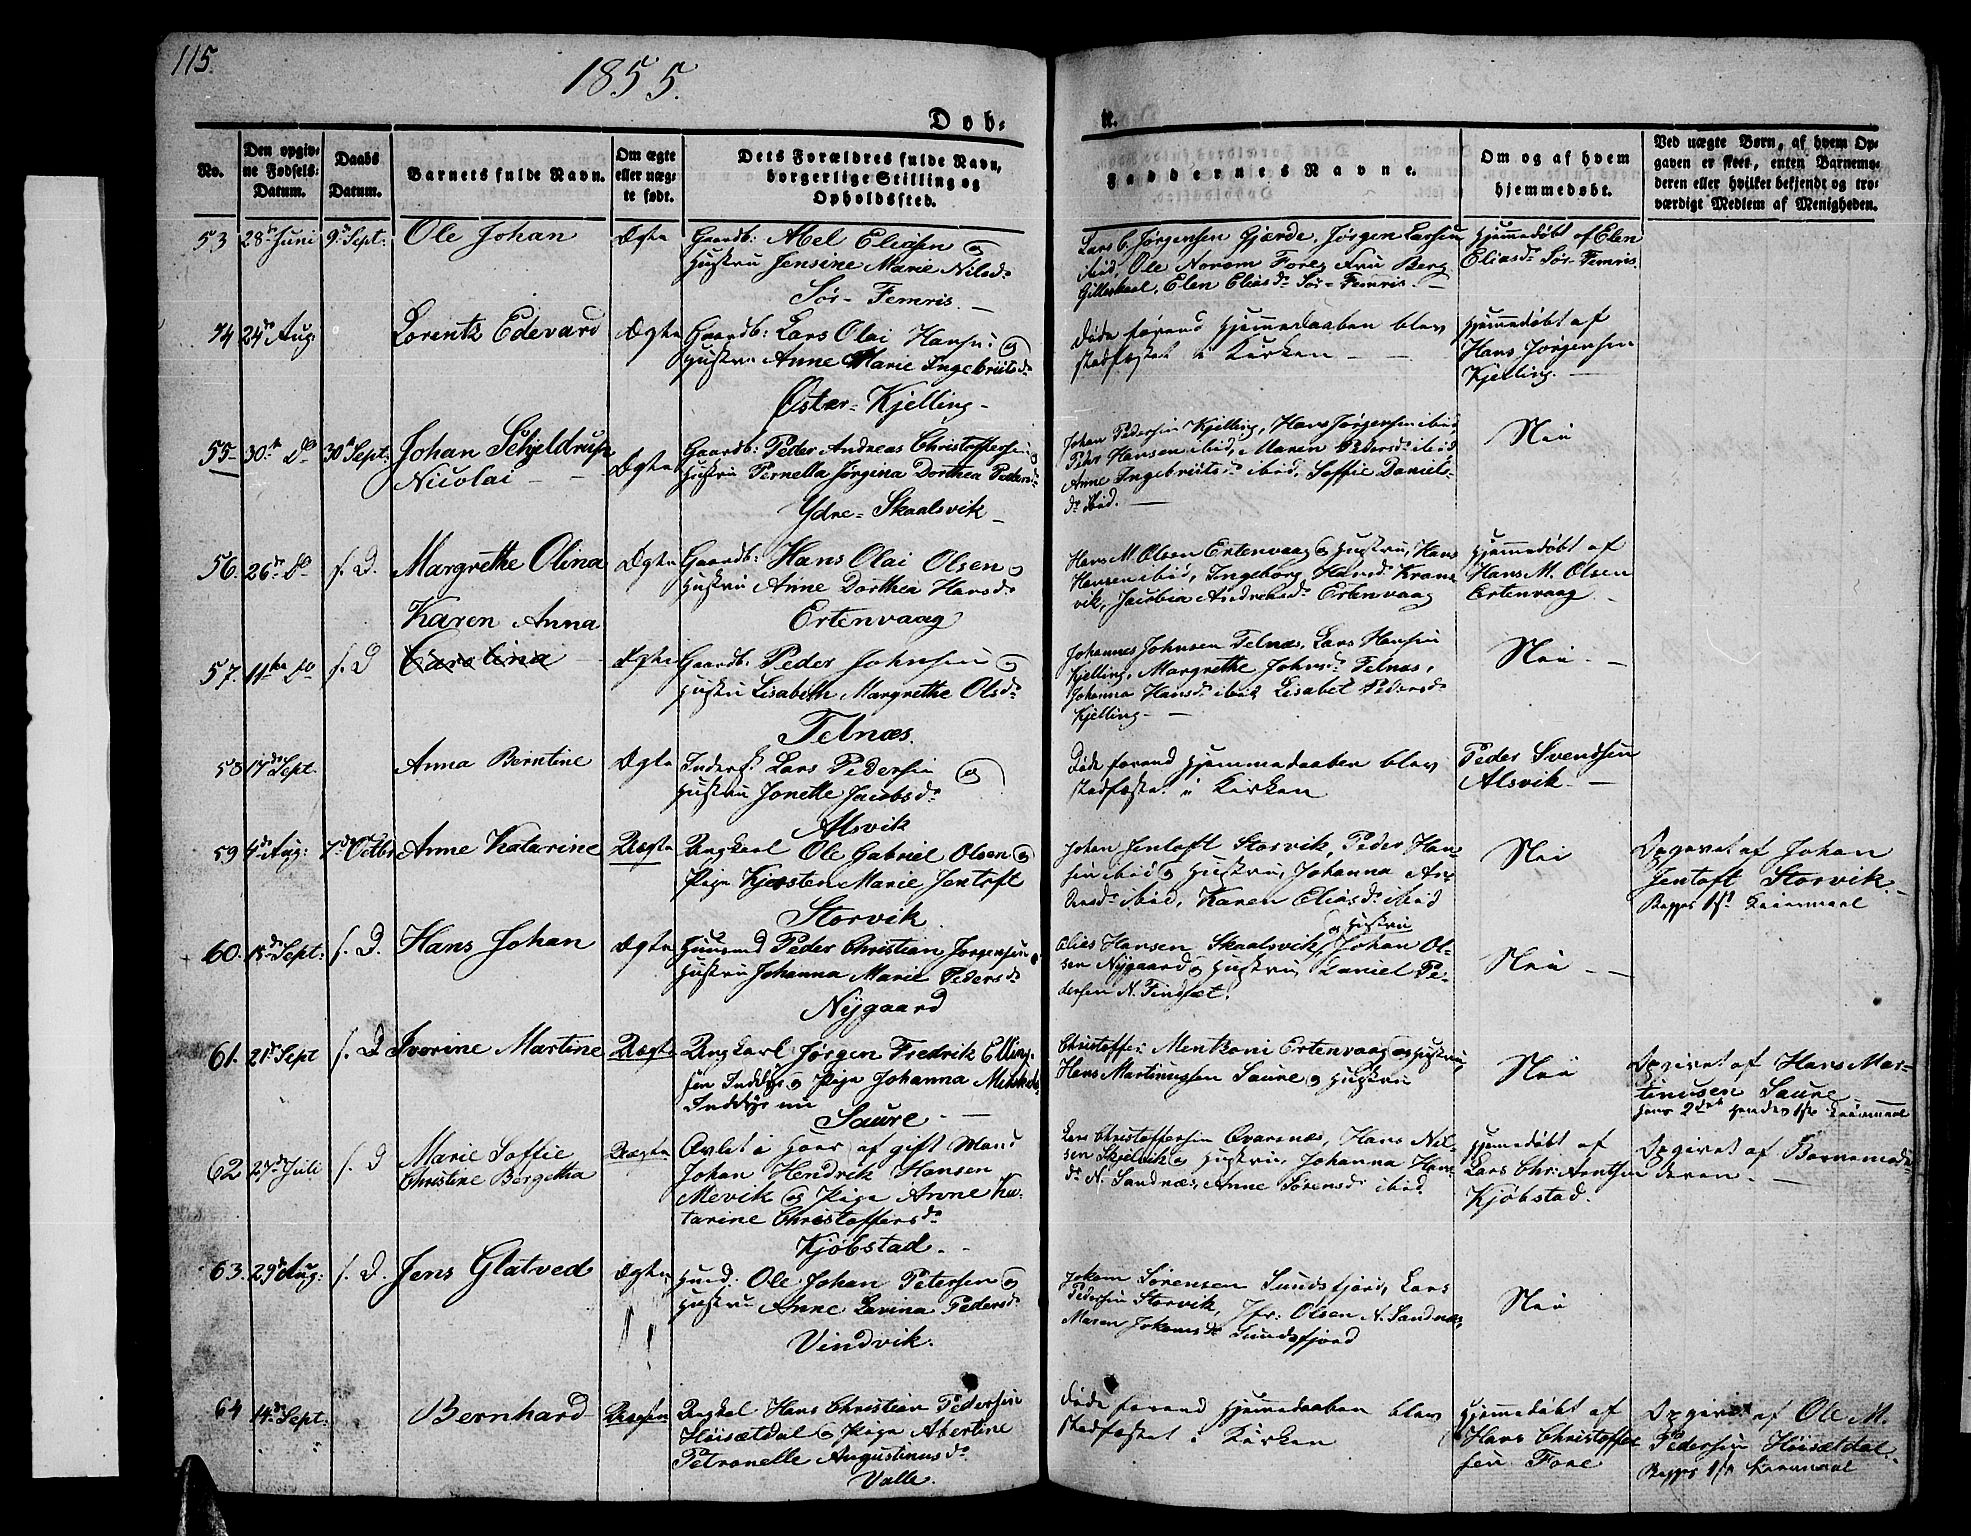 115.
1855.
Døb-
te.
No.
Den opgiv-
ne Fødsels-
Datum.
Daabs
Datum.
Barnets fulde Navn.
Om ægte
eller uæg-
te født.
Dets Forældres fulde Navn,
borgerlige Stilling og
Opholdssted.
Faddernes Navne.
Om og af hvem
hjemmedøbt.
Ved uægte Børn, af hvem Op-
gaven er skeet, enten Barnemo-
deren eller hvilket bekjendt og tro-
værdigt Medlem af Menigheden.
53 28de Juni 9de Sept. Ole Johan Ægte
Gaardb: Abel Eliasen og
Hustru Jensine Marie Nilsdr
Sør-Femris
Lars C. Jørgensen Gjærde, Jørgen Larsen
ibid, Ole Norom Fore, Fru Berg
Gilleskaal, Elen Eliasdr Sør-Femris.
Hjemmedøbt af Elen
Eliasdr Sør-Femris.
54 24de Aug: Lorentz Edevard Ægte
Gaardb: Lars Olai Hansen og
Hustru Anne Marie Ingebriktsdr
Øster-Kjelling
Døde førend Hjemmedaaben blev
stadfæstet i Kirken
Hjemmedøbt af
Hans Jørgensen
Kjelling.
55 30te Do 30te Sept: Johan Schjeldrup
Nicolai Ægte
Gaardb: Peder Andreas Christoffersen og
Hustru Pernella Jørgina Dorthea Pedersdr
Ydre-Skaalsvik
Johan Pedersen Kjelling, Hans Jørgensen ibid,
Peder Hansen ibid, Maren Pedersdr ibid,
Anne Ingebriktsdr ibid, Soffie Daniels-
dr ibid.
Nei
56. 26de Do s. D. Margrethe Olina Ægte
Gaardb: Hans Olai Olsen og
Hustru Anne Dorthea Hansdr
Ertenvaag
Hans M. Olsen Ertenvaag og Hustru, Hans
Hansen ibid, Ingeborg Hansdr Krans-
vik, Jacobia Andreasdr Ertenvaag
Hjemmedøbt af
Hans M. Olsen
Ertenvaag
Karen Anna
57. 11te Do s. D Carolina Ægte
Gaardb: Peder Johnsen og
Hustru Lisabeth Margrethe Olsdr
Telnæs.
Johannes Johnsen Telnæs, Lars Hansen
Kjelling, Margrethe Johnsdr Telnæs,
Johanna Hansdr ibid, Lisabet Pedersdr
Kjelling
Nei
58 17de Sept. Anna Berntine Ægte
Inderst Lars Pedersen og
Hustru Jonette Jacobsdr
Alsvik
Døde førend Hjemmedaaben blev
stadfæstet i Kirken
Peder Svendsen
Alsvik
59 4de Aug: 7de Octbr Anne Katarine Uægte
Ungkarl Ole Gabriel Olsen og
Pige Kjersten Marie Jentoft
Storvik
Johan Jentoft Storvik, Peder Han-
sen ibid og Hustru, Johanna An-
dersdr ibid, Karen Eliasdr ibid
Nei
Opgivet af Johan
Jentoft Storvik
Begges 1ste Leiermaal
60. 15de Sept: s. D. Hans Johan Ægte
Huusmd Peder Christian Jørgensen og
Hustru Johanna Marie Pedersdr
Nygaard
Elias Hansen Skaalsvik og Hustru, Johan Ol-
sen Nygaard og Hustru, Daniel Pe-
dersen N. Findset.
Nei
61. 21de Sept s. D Ivorine Martine Uægte
Ungkarl Jørgen Fredrik Elling-
sen Inddyr og Pige Johanna Mikkelsdr
Inddyr nu
Saure
Christoffer Menkoni Ertenvaag og Hustru,
Hans Martinussen Saure og Hustru
Nei
Opgivet af Hans Mar-
tinusen Saure
hans 2det hendes 1ste Leiermaal
62 27de Juli s. D Marie Soffie
Christine Bergetha Uægte
Avlet i Hoer af gift Mand
Johan Hendrik Hansen
Mevik og Pige Anne Ka-
tarine Christoffersdr
Kjøbstad.
Lars Christoffersen Qvarsnæs, Hans Nil-
sen Skjelvik og Hustru, Johanna Hans-
dr N. Sandnæs, Anne Sørensdr ibid.
Hjemmedøbt af
Lars Chr: Arntsen
Kjøbstad.
Opgivet af Barnemod-
eren.
63. 29de Aug: s. D. Jens Glatved Ægte
Husd: Ole Johan Petersen og
Hustru Anne Lavina Pedersdr
Vindvik.
Jokom Sørensen Sundsfjord, Lars
Pedersen Storvik, Jfr: Olsen N. Sandnæs,
Maren Jokomsdr Sundsfjord
Nei
64 14de Sept: Bernhard Uægte
Ungkal Hans Christian Pedersen
Høisætdal og Pige Abertine
Petronelle Augustinusdr
Valle.
Døde førend Hjemmedaaben blev
stadfæstet i Kirken
Hjemmedøbt af
Hans Christoffer-
sen Fore
Opgivet af Ole M.
Pedersen Høisætdal
Begges 1ste Leiermaal